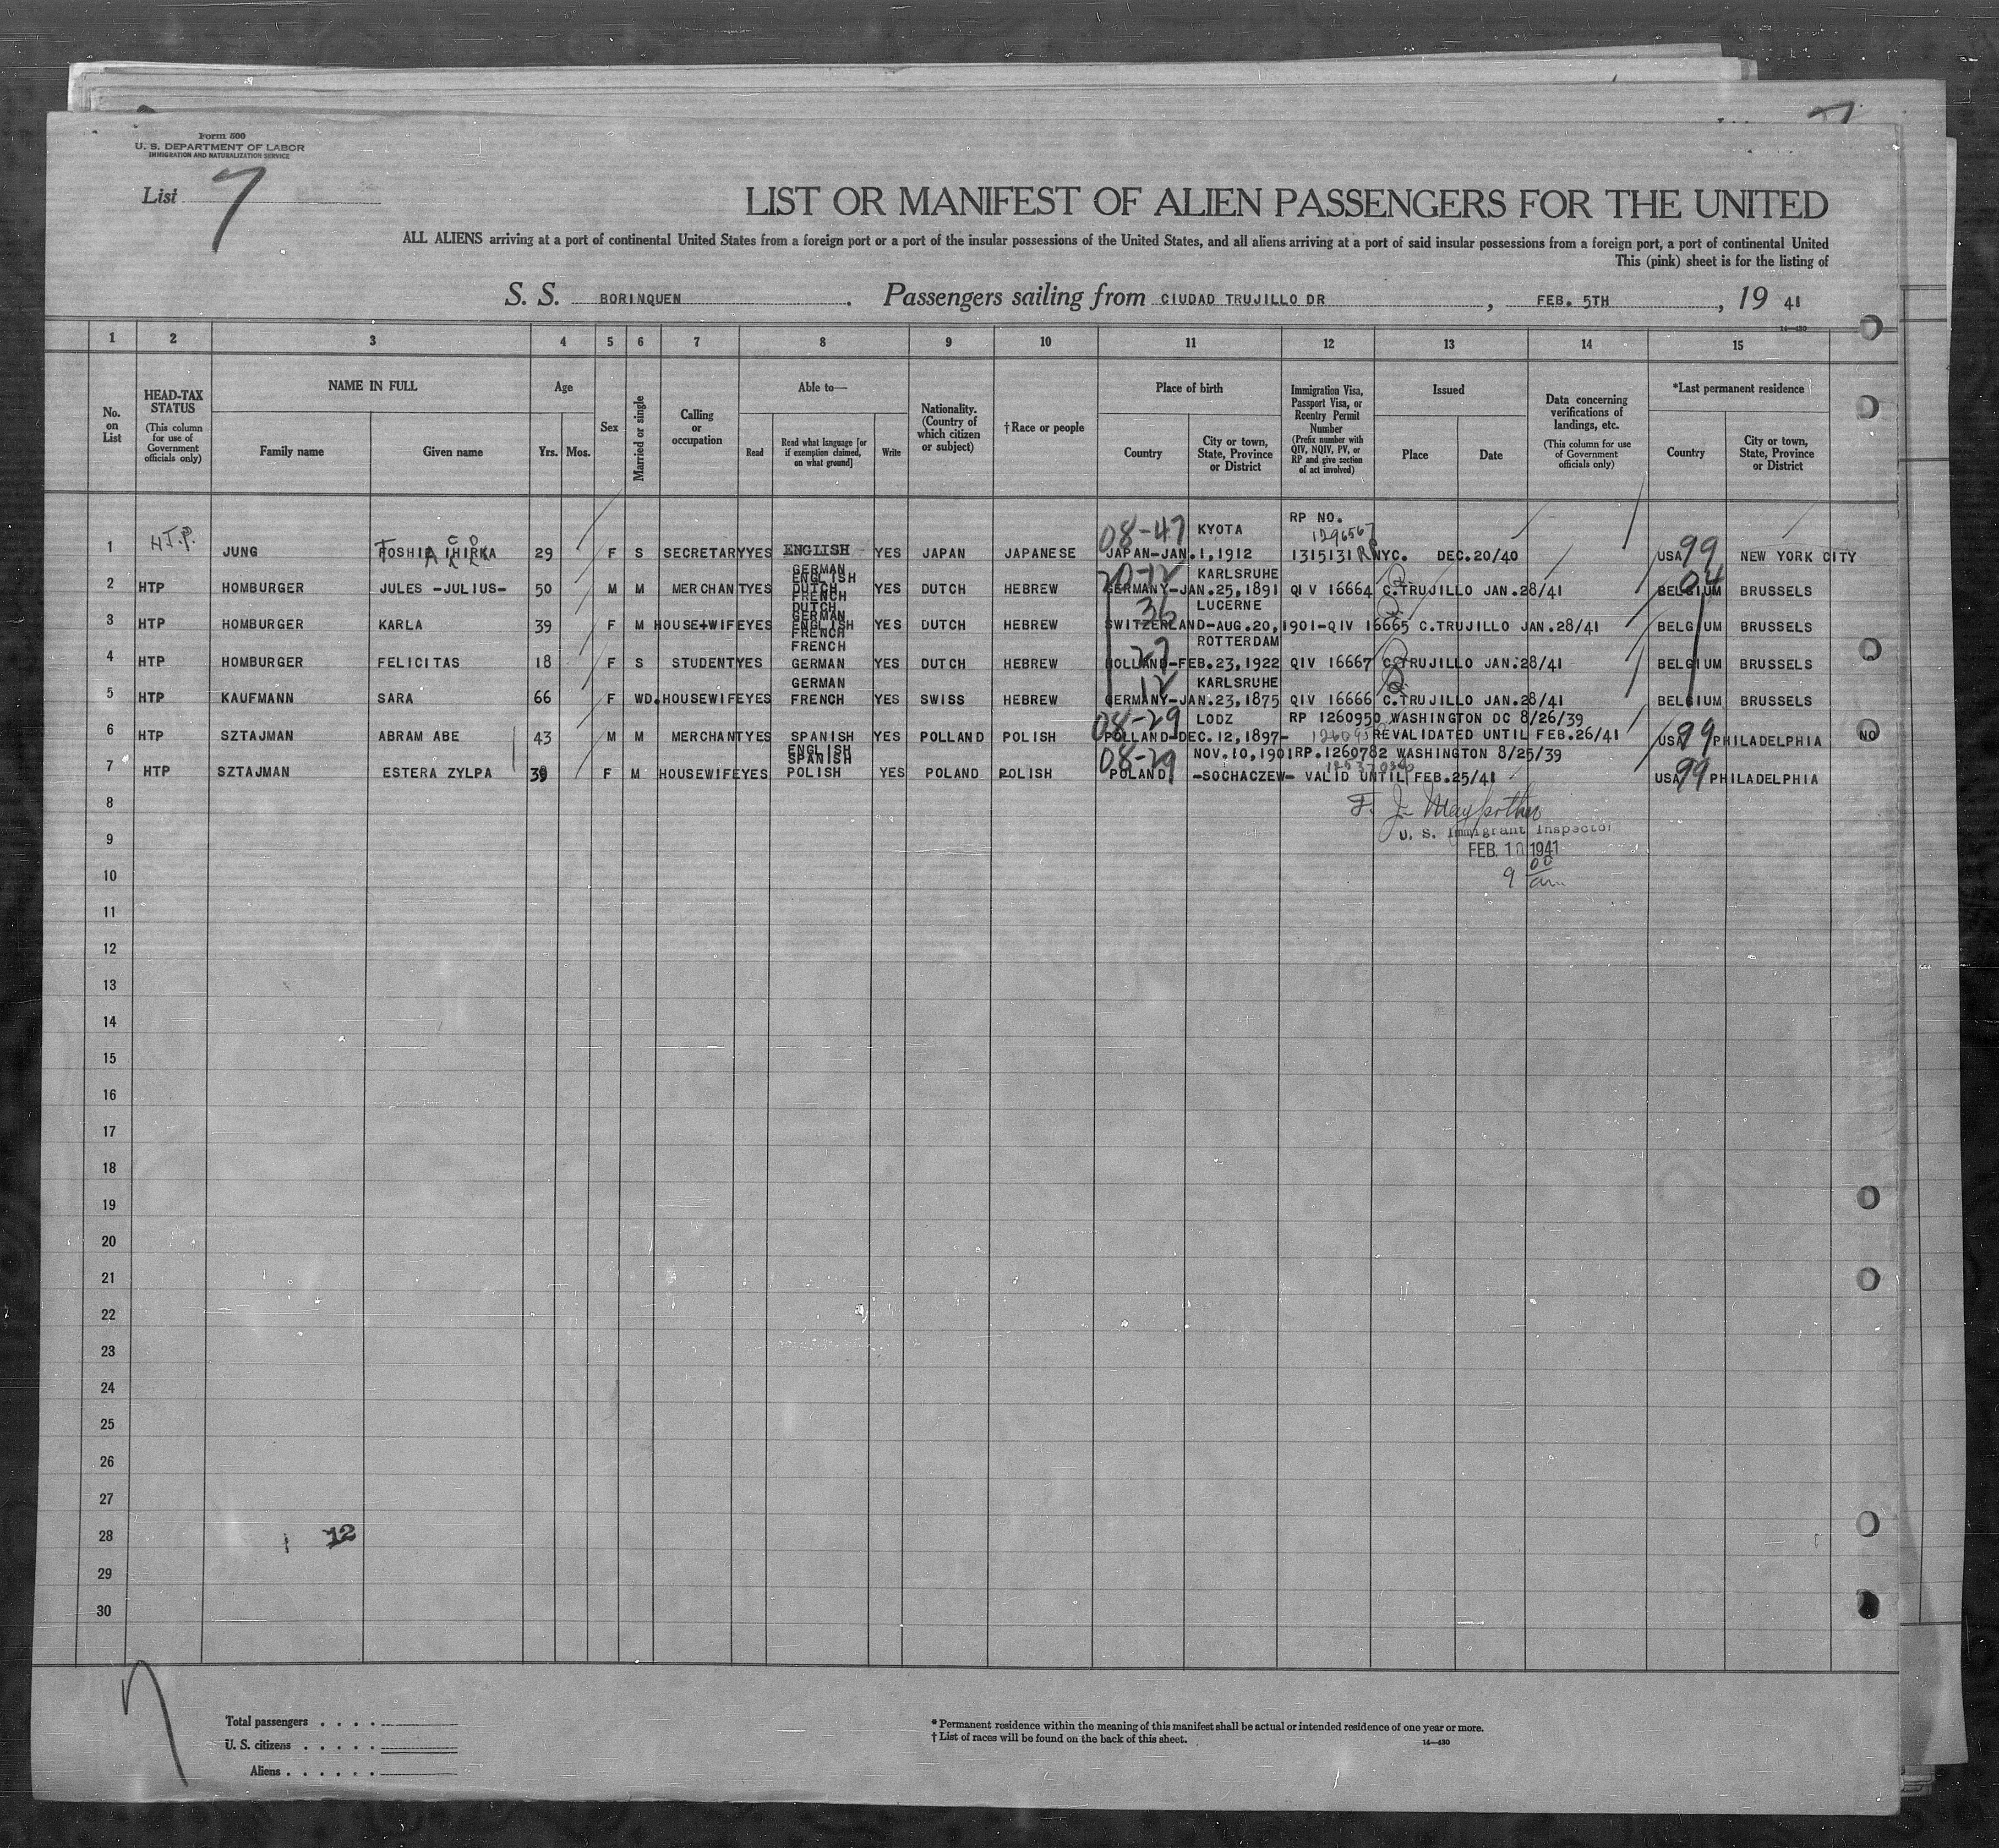 Form 500
U. S. DEPARTMENT OF LABOR
IMMIGRATION AND NATURALIZATION SERVICE
List 7
LIST OR MANIFEST OF ALIEN PASSENGERS FOR THE UNITED
ALL ALIENS arriving at a port of continental United States from a foreign port or a port of the insular possessions of the United States, and all aliens arriving at a port of said insular possessions from a foreign port, a port of continental United
This (pink) sheet is for the listing of
S. S. BORINQUEN. Passengers sailing from CIUDAD TRUJILLO DR, FEB. 5TH, 19 41
14—430
1 2 3 4 5 6 7 8 9 10 11 12 13 14 15
No. on List
HEAD-TAX STATUS
(This column for use of Government officials only)
NAME IN FULL
Family name
Given name
Age
Yrs. Mos.
Sex
Married or single
Calling or occupation
Able to—
Read
Read what language [or if exemption claimed, on what ground]
Write
Nationality. (Country of which citizen or subject)
†Race or people
Place of birth
Country
City or town, State, Province or District
Immigration Visa, Passport Visa, or Reentry Permit Number
(Prefix number with QIV, NQIV, PV, or RP and give section of act involved)
Issued
Place
Date
Data concerning verifications of landings, etc.
(This column for use of Government officials only)
*Last permanent residence
Country
City or town, State, Province or District
08-47 KYOTA RP NO.
1296567
1 JUNG 29 F S SECRETARY YES ENGLISH YES JAPAN JAPANESE JAPAN-JAN.1,1912 1315131 NYC. DEC.20/40 USA 99 NEW YORK CITY
GERMAN
ENGLISH KARLSRUHE
2 HTP HOMBURGER JULES -JULIUS- 50 M M MERCHANT YES DUTCH YES DUTCH HEBREW GERMANY-JAN.25,1891 QIV 16664 C.TRUJILLO JAN.28/41 BELGIUM 04 BRUSSELS
FRENCH
DUTCH 36 LUCERNE
GERMAN
3 HTP HOMBURGER KARLA 39 F M HOUSE+WIFE YES ENGLISH YES DUTCH HEBREW SWITZERLAND-AUG.20,1901-QIV 16665 C.TRUJILLO JAN.28/41 BELGIUM BRUSSELS
FRENCH ROTTERDAM
FRENCH
4 HTP HOMBURGER FELICITAS 18 F S STUDENT YES GERMAN YES DUTCH HEBREW HOLLAND-FEB.23,1922 QIV 16667 C.TRUJILLO JAN.28/41 BELGIUM BRUSSELS
GERMAN 12 KARLSRUHE
5 HTP KAUFMANN SARA 66 F WD. HOUSEWIFE YES FRENCH YES SWISS HEBREW GERMANY-JAN.23,1875 QIV 16666 C.TRUJILLO JAN.28/41 BELGIUM BRUSSELS
08-29 LODZ RP 1260950 WASHINGTON DC 8/26/39
6 HTP SZTAJMAN ABRAM ABE 43 M M MERCHANT YES SPANISH YES POLLAND POLISH POLLAND-DEC.12,1897- REVALIDATED UNTIL FEB.26/41 USA 99 PHILADELPHIA NO
ENGLISH
SPANISH 08-29 NOV.10,1901 RP.1260782 WASHINGTON 8/25/39
7 HTP SZTAJMAN ESTERA ZYLPA 39 F M HOUSEWIFE YES POLISH YES POLAND POLISH POLAND -SOCHACZEW- VALID UNTIL FEB.25/41 USA 99 PHILADELPHIA
8
U. S. Immigrant Inspector
9
FEB. 10 1941
9 00 am
10
11
12
13
14
15
16
17
18
19
20
21
22
23
24
25
26
27
28 12
29
30
7
Total passengers . . . .
U. S. citizens . . . . .
Aliens . . . . . .
* Permanent residence within the meaning of this manifest shall be actual or intended residence of one year or more.
† List of races will be found on the back of this sheet.
14—430